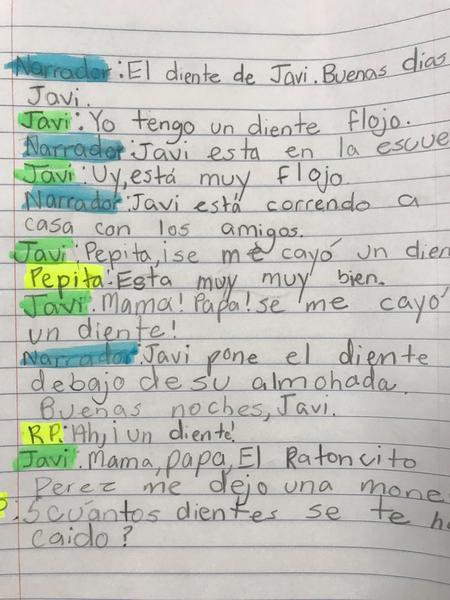 Narrador: El diente de Javi. Buenas dias
Javi.
Javi: Yo tengo un diente flojo.
Narrador: Javi esta en la escue
Javi: Uy, está muy flojo.
Narrador: Javi está correndo a
casa con los amigos.
Javi: Pepita, ¡se me cayó un dien
Pepita: Esta muy muy bien.
Javi. Mama! Papa! se me cayó
un diente!
Narrador: Javi pone el diente
debajo de su almohada.
Buenas noches, Javi.
RP: Ah, ¡un diente!
Javi: Mama, papa, El Ratoncito
Perez me dejo una mone
: ¿cuántos dientes se te h
caido?